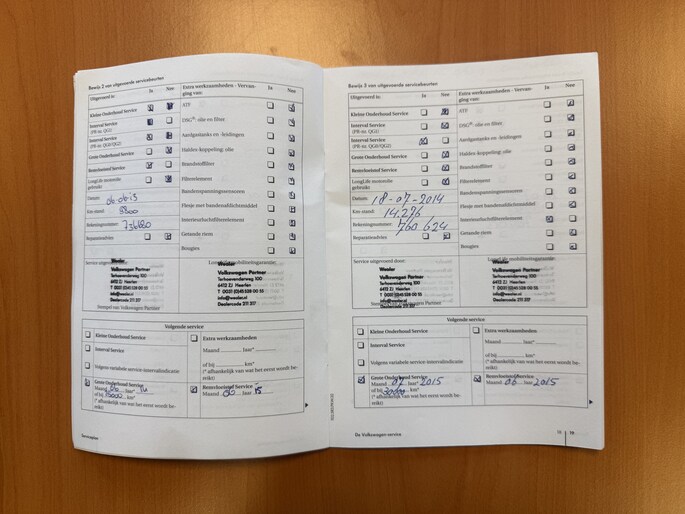 Bewijs 2 van uitgevoerde servicebeurten
Uitgevoerd is: Ja Nee
Kleine Onderhoud Service
Interval Service
(PR-nr. QG1)
Interval Service
(PR-nr. QG0/QG2)
Grote Onderhoud Service
Remvloeistof Service
LongLife motorolie
gebruikt
Datum: 06-06-13
Km-stand: 5800
Rekeningnummer: 736680
Reparatieadvies
Extra werkzaamheden - Vervan- Ja Nee
ging van:
ATF
DSG®-olie en filter
Aardgastanks en -leidingen
Haldex-koppeling: olie
Brandstoffilter
Filterelement
Bandenspanningssensoren
Flesje met bandendichtmiddel
Interieurluchtfilterelement
Getande riem
Bougies
Service uitgevoerd door:
Weeler
Volkswagen Partner
Terhoevenderweg 100
6412 ZJ Heerlen
T 0031 (0)45 528 00 55
info@weeler.nl
Dealercode 211 317
Stempel van Volkswagen Partner
LongLife mobiliteitsgarantie
Weeler
Volkswagen Partner
Terhoevenderweg 100
6412 ZJ Heerlen
T 0031 (0)45 528 00 55
info@weeler.nl
Dealercode 211 317
Volgende service
Kleine Onderhoud Service
Interval Service
Volgens variabele service-intervalindicatie
Grote Onderhoud Service
Maand 06 Jaar* 14
of bij 15000 km*
(* afhankelijk van wat het eerst wordt be-
reikt)
Extra werkzaamheden
Maand ......... Jaar ......... *
of bij ......... km*
(* afhankelijk van wat het eerst wordt be-
reikt)
Remvloeistof Service
Maand 06 Jaar 15
Serviceplan
Bewijs 3 van uitgevoerde servicebeurten
Uitgevoerd is: Ja Nee
Kleine Onderhoud Service
Interval Service
(PR-nr. QG1)
Interval Service
(PR-nr. QG0/QG2)
Grote Onderhoud Service
Remvloeistof Service
LongLife motorolie
gebruikt
Datum: 18-07-2014
Km-stand: 14.276
Rekeningnummer: 760 624
Reparatieadvies
Extra werkzaamheden - Vervan- Ja Nee
ging van:
ATF
DSG®-olie en filter
Aardgastanks en -leidingen
Haldex-koppeling: olie
Brandstoffilter
Filterelement
Bandenspanningssensoren
Flesje met bandendichtmiddel
Interieurluchtfilterelement
Getande riem
Bougies
Service uitgevoerd door:
Weeler
Volkswagen Partner
Terhoevenderweg 100
6412 ZJ Heerlen
T 0031 (0)45 528 00 55
info@weeler.nl
Dealercode 211 317
LongLife mobiliteitsgarantie
Weeler
Volkswagen Partner
Terhoevenderweg 100
6412 ZJ Heerlen
T 0031 (0)45 528 00 55
info@weeler.nl
Dealercode 211 317
Volgende service
Kleine Onderhoud Service
Interval Service
Volgens variabele service-intervalindicatie
Grote Onderhoud Service
Maand 07 Jaar* 2015
of bij 30000 km*
(* afhankelijk van wat het eerst wordt be-
reikt)
Extra werkzaamheden
Maand ......... Jaar ......... *
of bij ......... km*
(* afhankelijk van wat het eerst wordt be-
reikt)
Remvloeistof Service
Maand 06 Jaar 2015
De Volkswagen-service